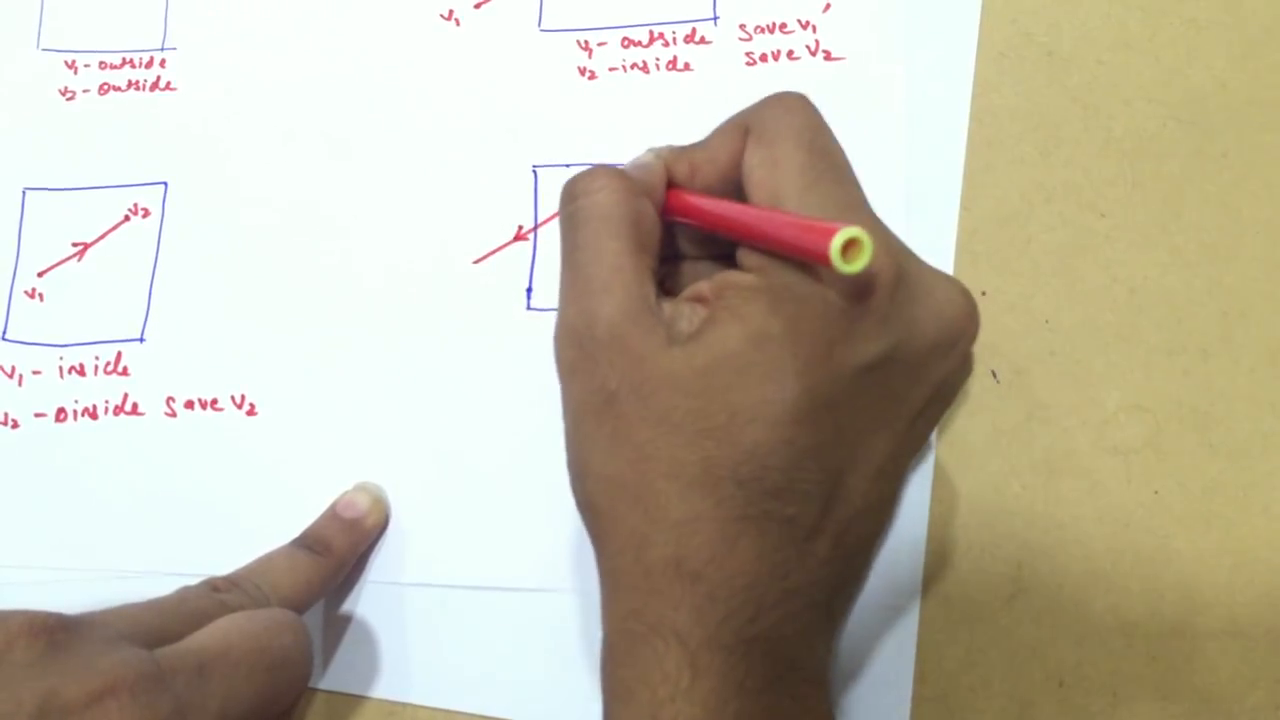 v1 - outside
v2 - outside
v1
v1 - outside save v1'
v2 - inside save v2
v2
v1
v1 - inside
v2 - inside save v2